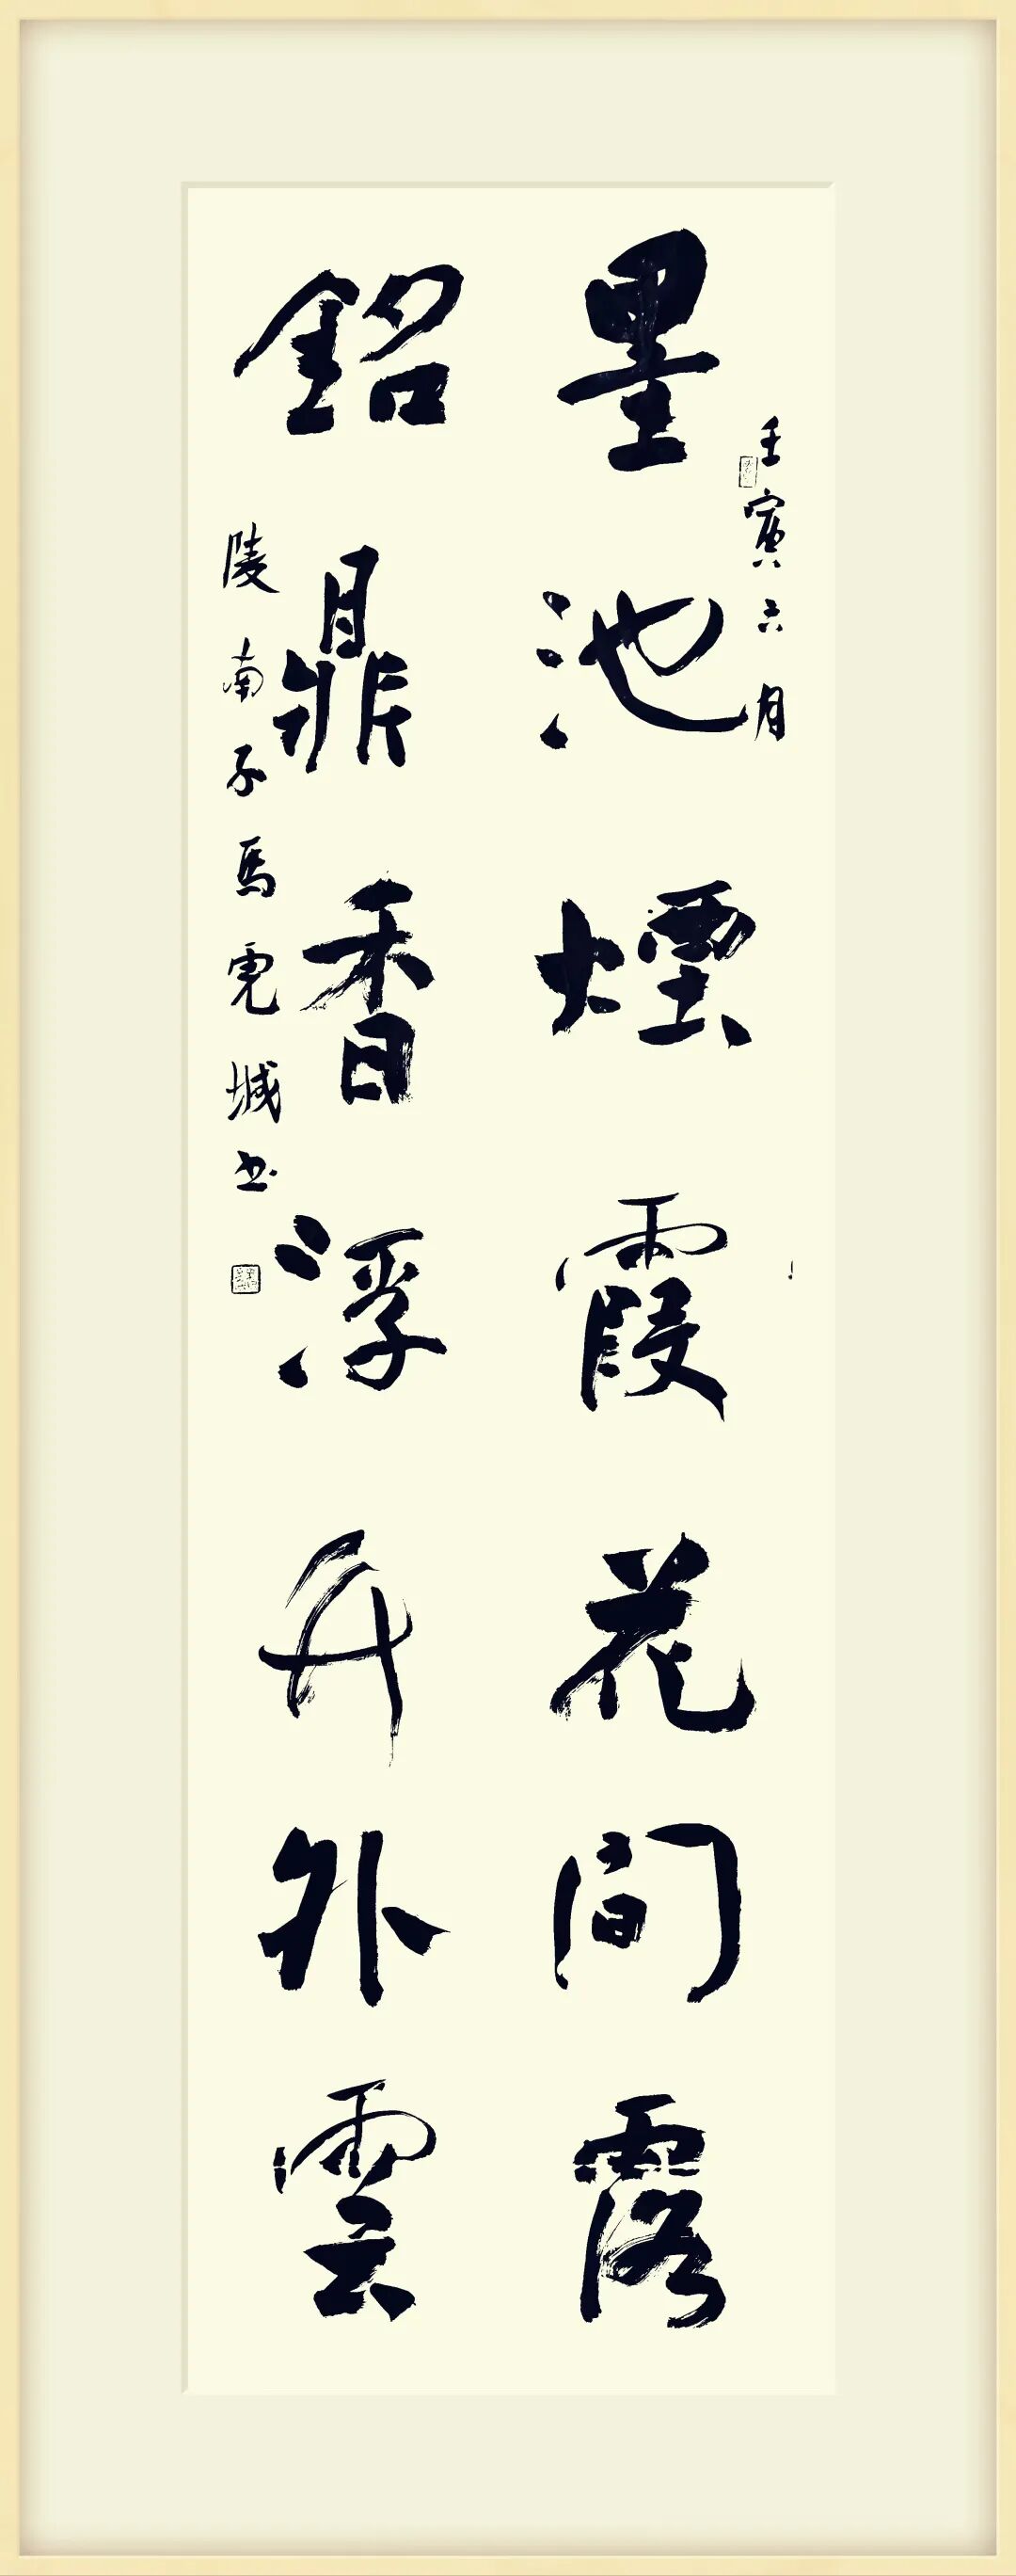 壬寅六月
墨池煙霞花間露
銘鼎香浮竹外雲
陵南子馬
城书